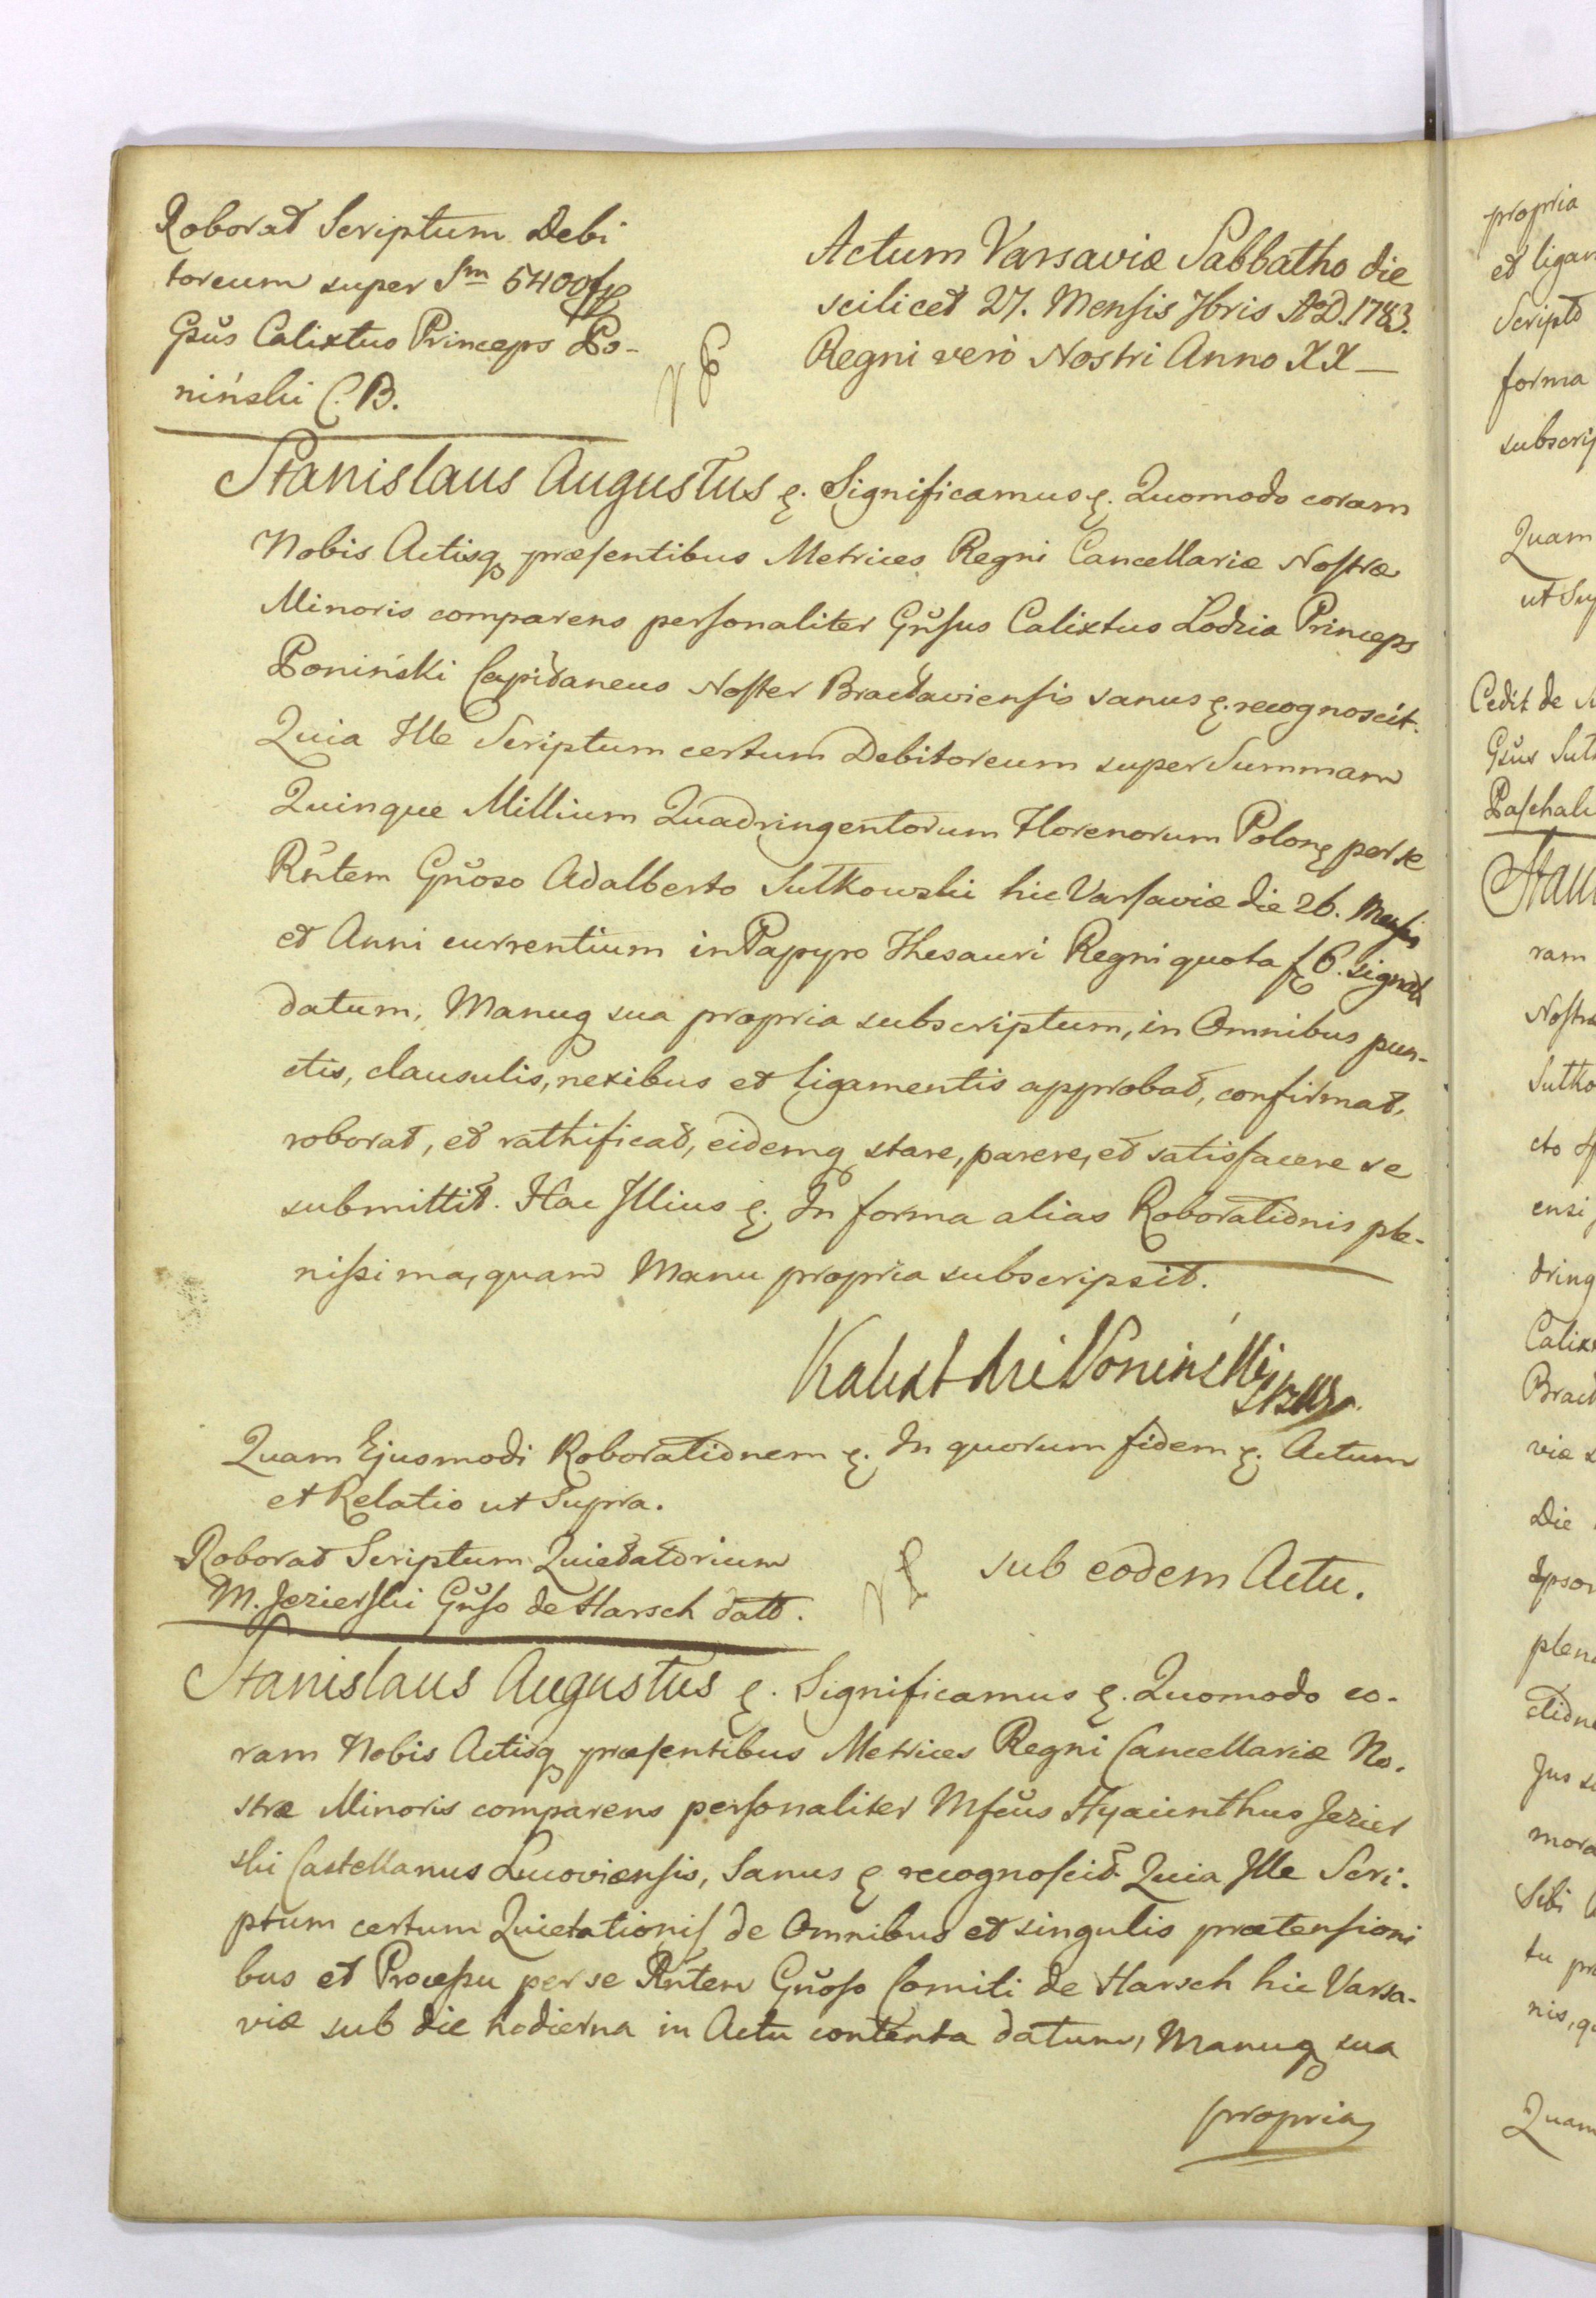 Roborat Scriptum Debi
toreum super Sm 5400 fp
Gsus Calixtus Princeps Po-
niński C. B.
Actum Varsaviæ Sabbatho die
scilicet 27. Mensis 7bris A.D. 1783.
Regni verò Nostri Anno XX —
Stanislaus Augustus &. Significamus &. Quomodo coram
Nobis Actisq præsentibus Metrices Regni Cancellariæ Nostræ
Minoris comparens personaliter Gnsus Calixtus Lodzia Princeps
Poniński Capitaneus Noster Bractaviensis sanus &. recognoscit.
Quia Ille Scriptum certum Debitoreum super Summam
Quinque Millium Quadringentorum Florenorum Polon per se
Rntem Gnoso Adalberto Sutkowski hic Varsaviæ die 26. Mensis
et Anni currentium in Papyro Thesauri Regni quota f 6. signata
datum, Manuq sua propria subscriptum, in Omnibus pun-
ctis, clausulis, nexibus et ligamentis approbat, confirmat,
roborat, et rathificat, eidemq stare, parere, et satisfacere se
submittit. Hac Illius &. In forma alias Roborationis ple-
nissima, quam Manu propria subscripsit.
Kalixt Poniński
Quam Ejusmodi Roborationem &. In quorum fidem &. Actum
et Relatio ut Supra.
Roborat Scriptum Quietatorium
M. Jezierski Gnso de Harsch datt.
sub eodem Actu.
Stanislaus Augustus &. Significamus &. Quomodo co-
ram Nobis Actisq præsentibus Metrices Regni Cancellariæ No-
stræ Minoris comparens personaliter Mfcus Hyacinthus Jezier
ski Castellanus Lucoviensis, Sanus & recognoscit Quia Ille Scri-
ptum certum Quietationis de Omnibus et singulis prætensioni
bus et Processu per se Rntem Gnoso Comiti de Harsch hic Varsa-
viæ sub die hodierna in Actu contenta datum, Manuq sua
propria
propria
et ligam
Script
forma
subscrip
Quam
ut Sup
Cedit de
Gsus Sut
Paschali
Stani
ram
Nostræ
Sutko
cto
ensi
dring
Calix
Bract
viæ
Die
Ipsor
plen
ctidne
Jus
mora
Sibi
tu pr
nis, q
Quam